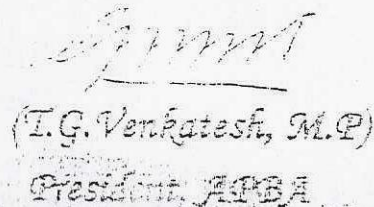 (T.G. Venkatesh, M.P)
President, APBA